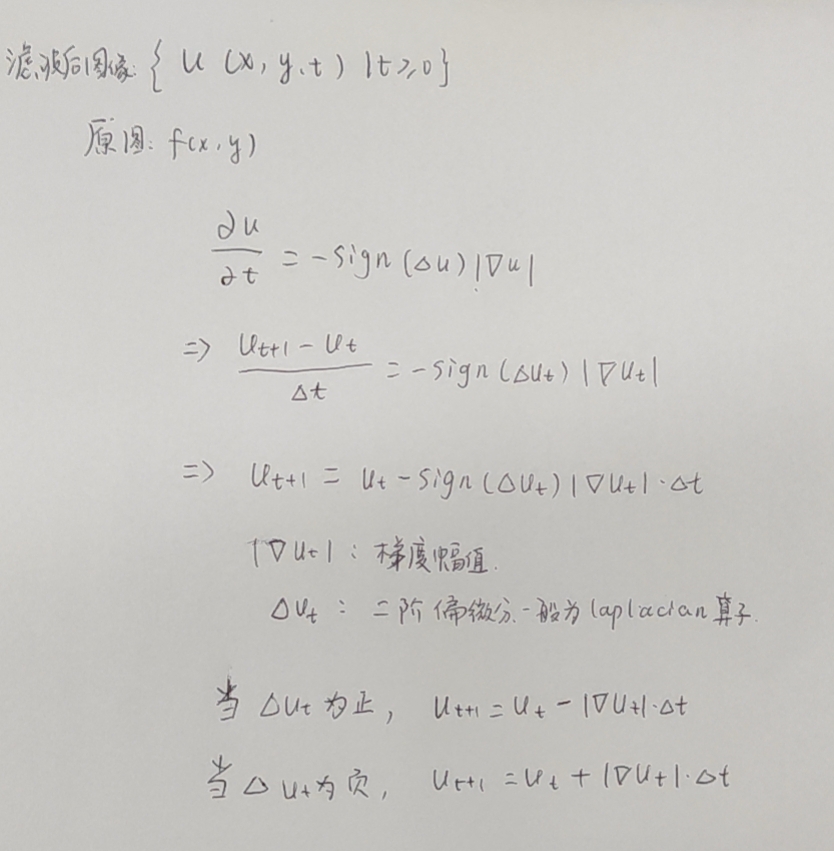 滤波后图像: { u (x, y, t) | t ≥ 0 }
原图: f(x, y)
∂u/∂t = -sign(Δu)|∇u|
=> (u_{t+1} - u_t)/Δt = -sign(Δu_t)|∇u_t|
=> u_{t+1} = u_t - sign(Δu_t)|∇u_t|·Δt
|∇u_t| : 梯度幅值.
Δu_t : 二阶偏微分一般为laplacian算子.
当 Δu_t 为正, u_{t+1} = u_t - |∇u_t|·Δt
当 Δu_t 为负, u_{t+1} = u_t + |∇u_t|·Δt